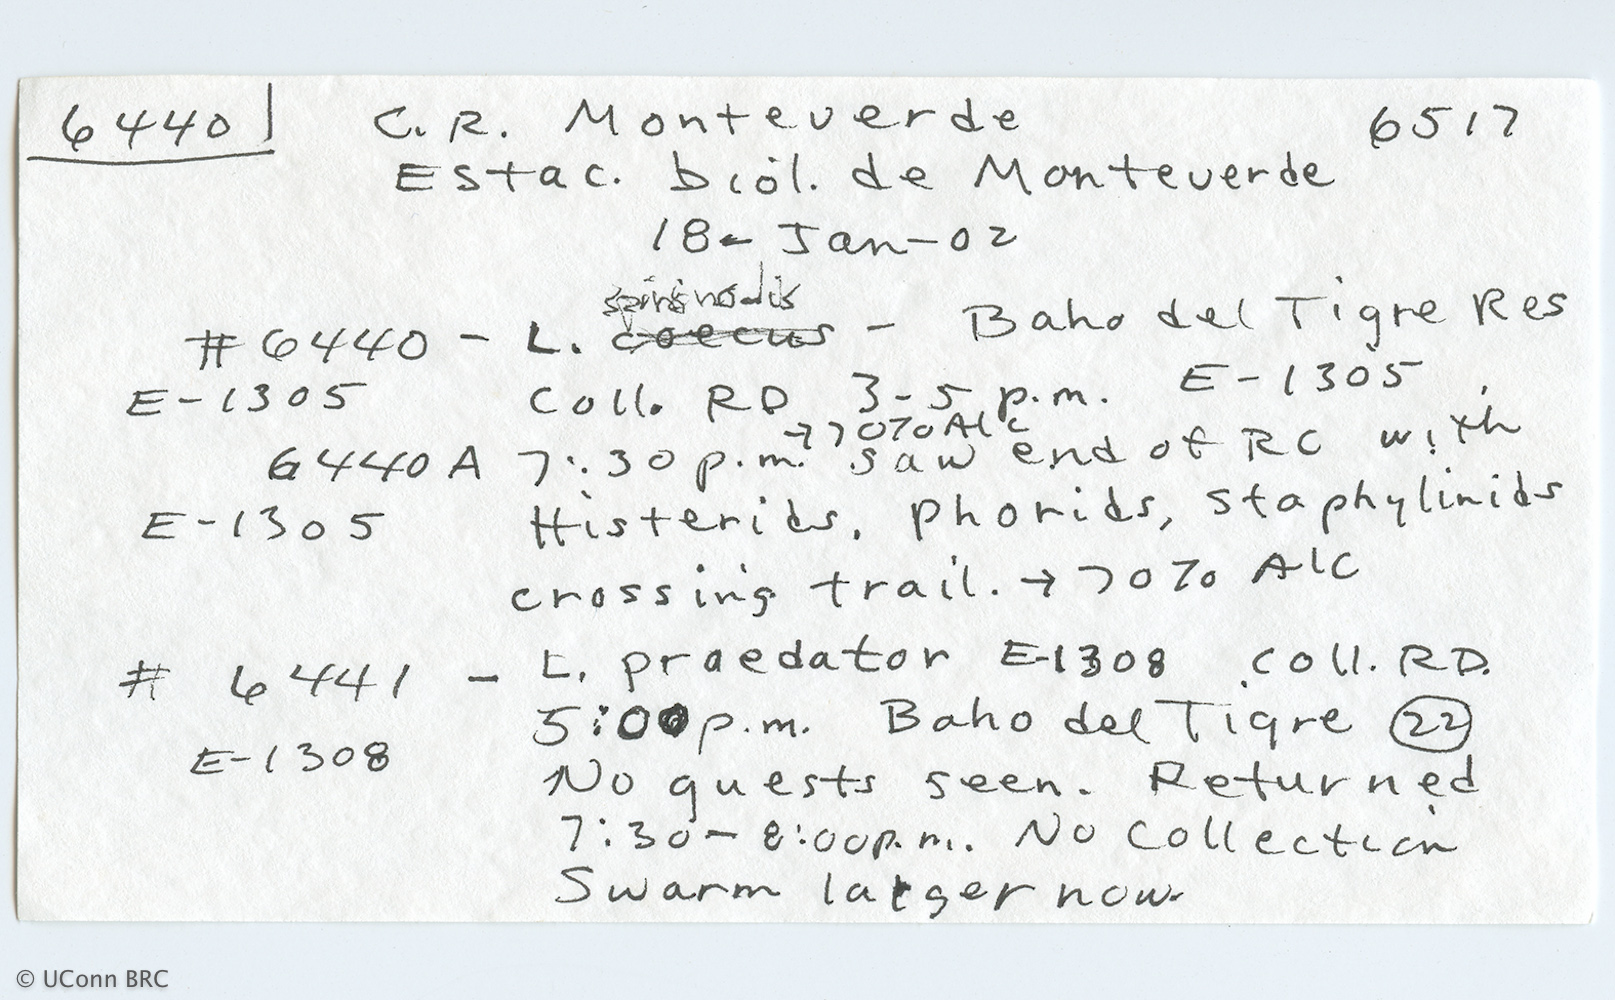 6440 C. R. Monteverde 6517
Estac. biol. de Monteverde
18-Jan-02
spininodis
#6440 - L. coecus - Baho del Tigre Res
E-1305 Coll. RD 3-5 p.m. E-1305
→70% Alc
6440A 7:30 p.m. saw end of RC with
E-1305 Histerids, Phorids, staphylinids
crossing trail. → 70% Alc
# 6441 - L. praedator E-1308 coll. RD.
5:00 p.m. Baho del Tigre 22
E-1308 No guests seen. Returned
7:30-8:00 p.m. No collection
Swarm larger now.
© UConn BRC